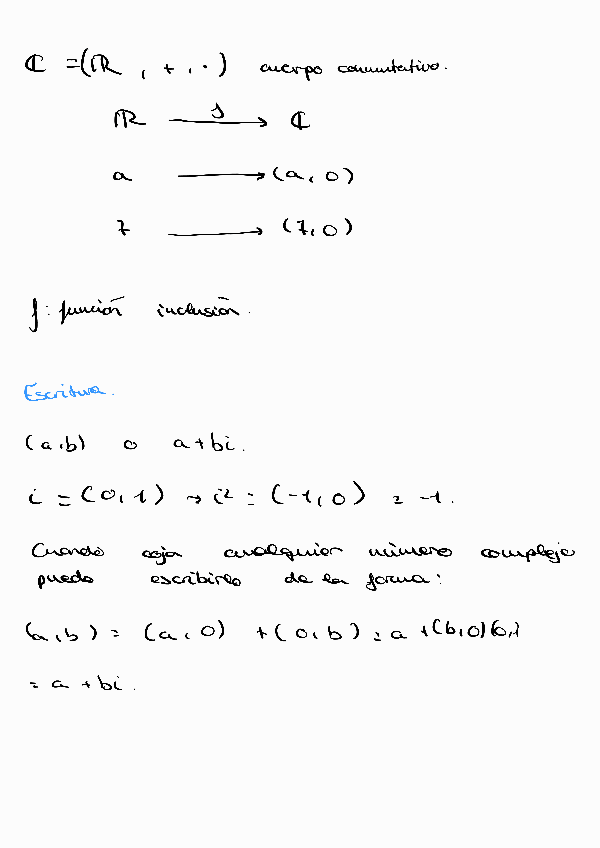 ℂ = (ℝ, +, ·) cuerpo conmutativo.
ℝ ⟶ f ℂ
a ⟶ (a, 0)
7 ⟶ (7, 0)
f: función inclusión.
Escritura.
(a,b) o a+bi.
i = (0,1) → i² = (-1,0) = -1.
Cuando coja cualquier número complejo
puedo escribirlo de la forma:
(a,b) = (a,0) + (0,b) = a + (b,0)(0,1)
= a + bi.